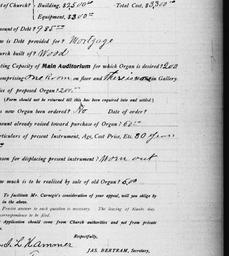 of Church? Building, $2500.00 Total Cost, $3,300.00
Equipment, $800.00
Amount of Debt? 985.00
is Debt provided for? Mortgage
Church built of? Wood
Seating Capacity of Main Auditorium for which Organ is desired? 200
comprising one Room on floor and there is none in Gallery.
Price of proposed Organ? 1200.00
(Form should not be returned till this has been required into and settled)
is now Organ ordered? No Date of order?
amount already raised toward purchase of Organ?
Particulars of present Instrument, Age, Cost Price, Etc. 30 years
Reason for displacing present instrument? Worn out
How much is to be realized by sale of old Organ? 5.00
To facilitate Mr. Carnegie's consideration of your appeal, will you oblige by
in the above.
Precise answer to each question is necessary. The leaving of blanks
correspondence to be filed.
Application should come from Church authorities and not from private
Respectfully,
JAS. BERTRAM, Secretary,